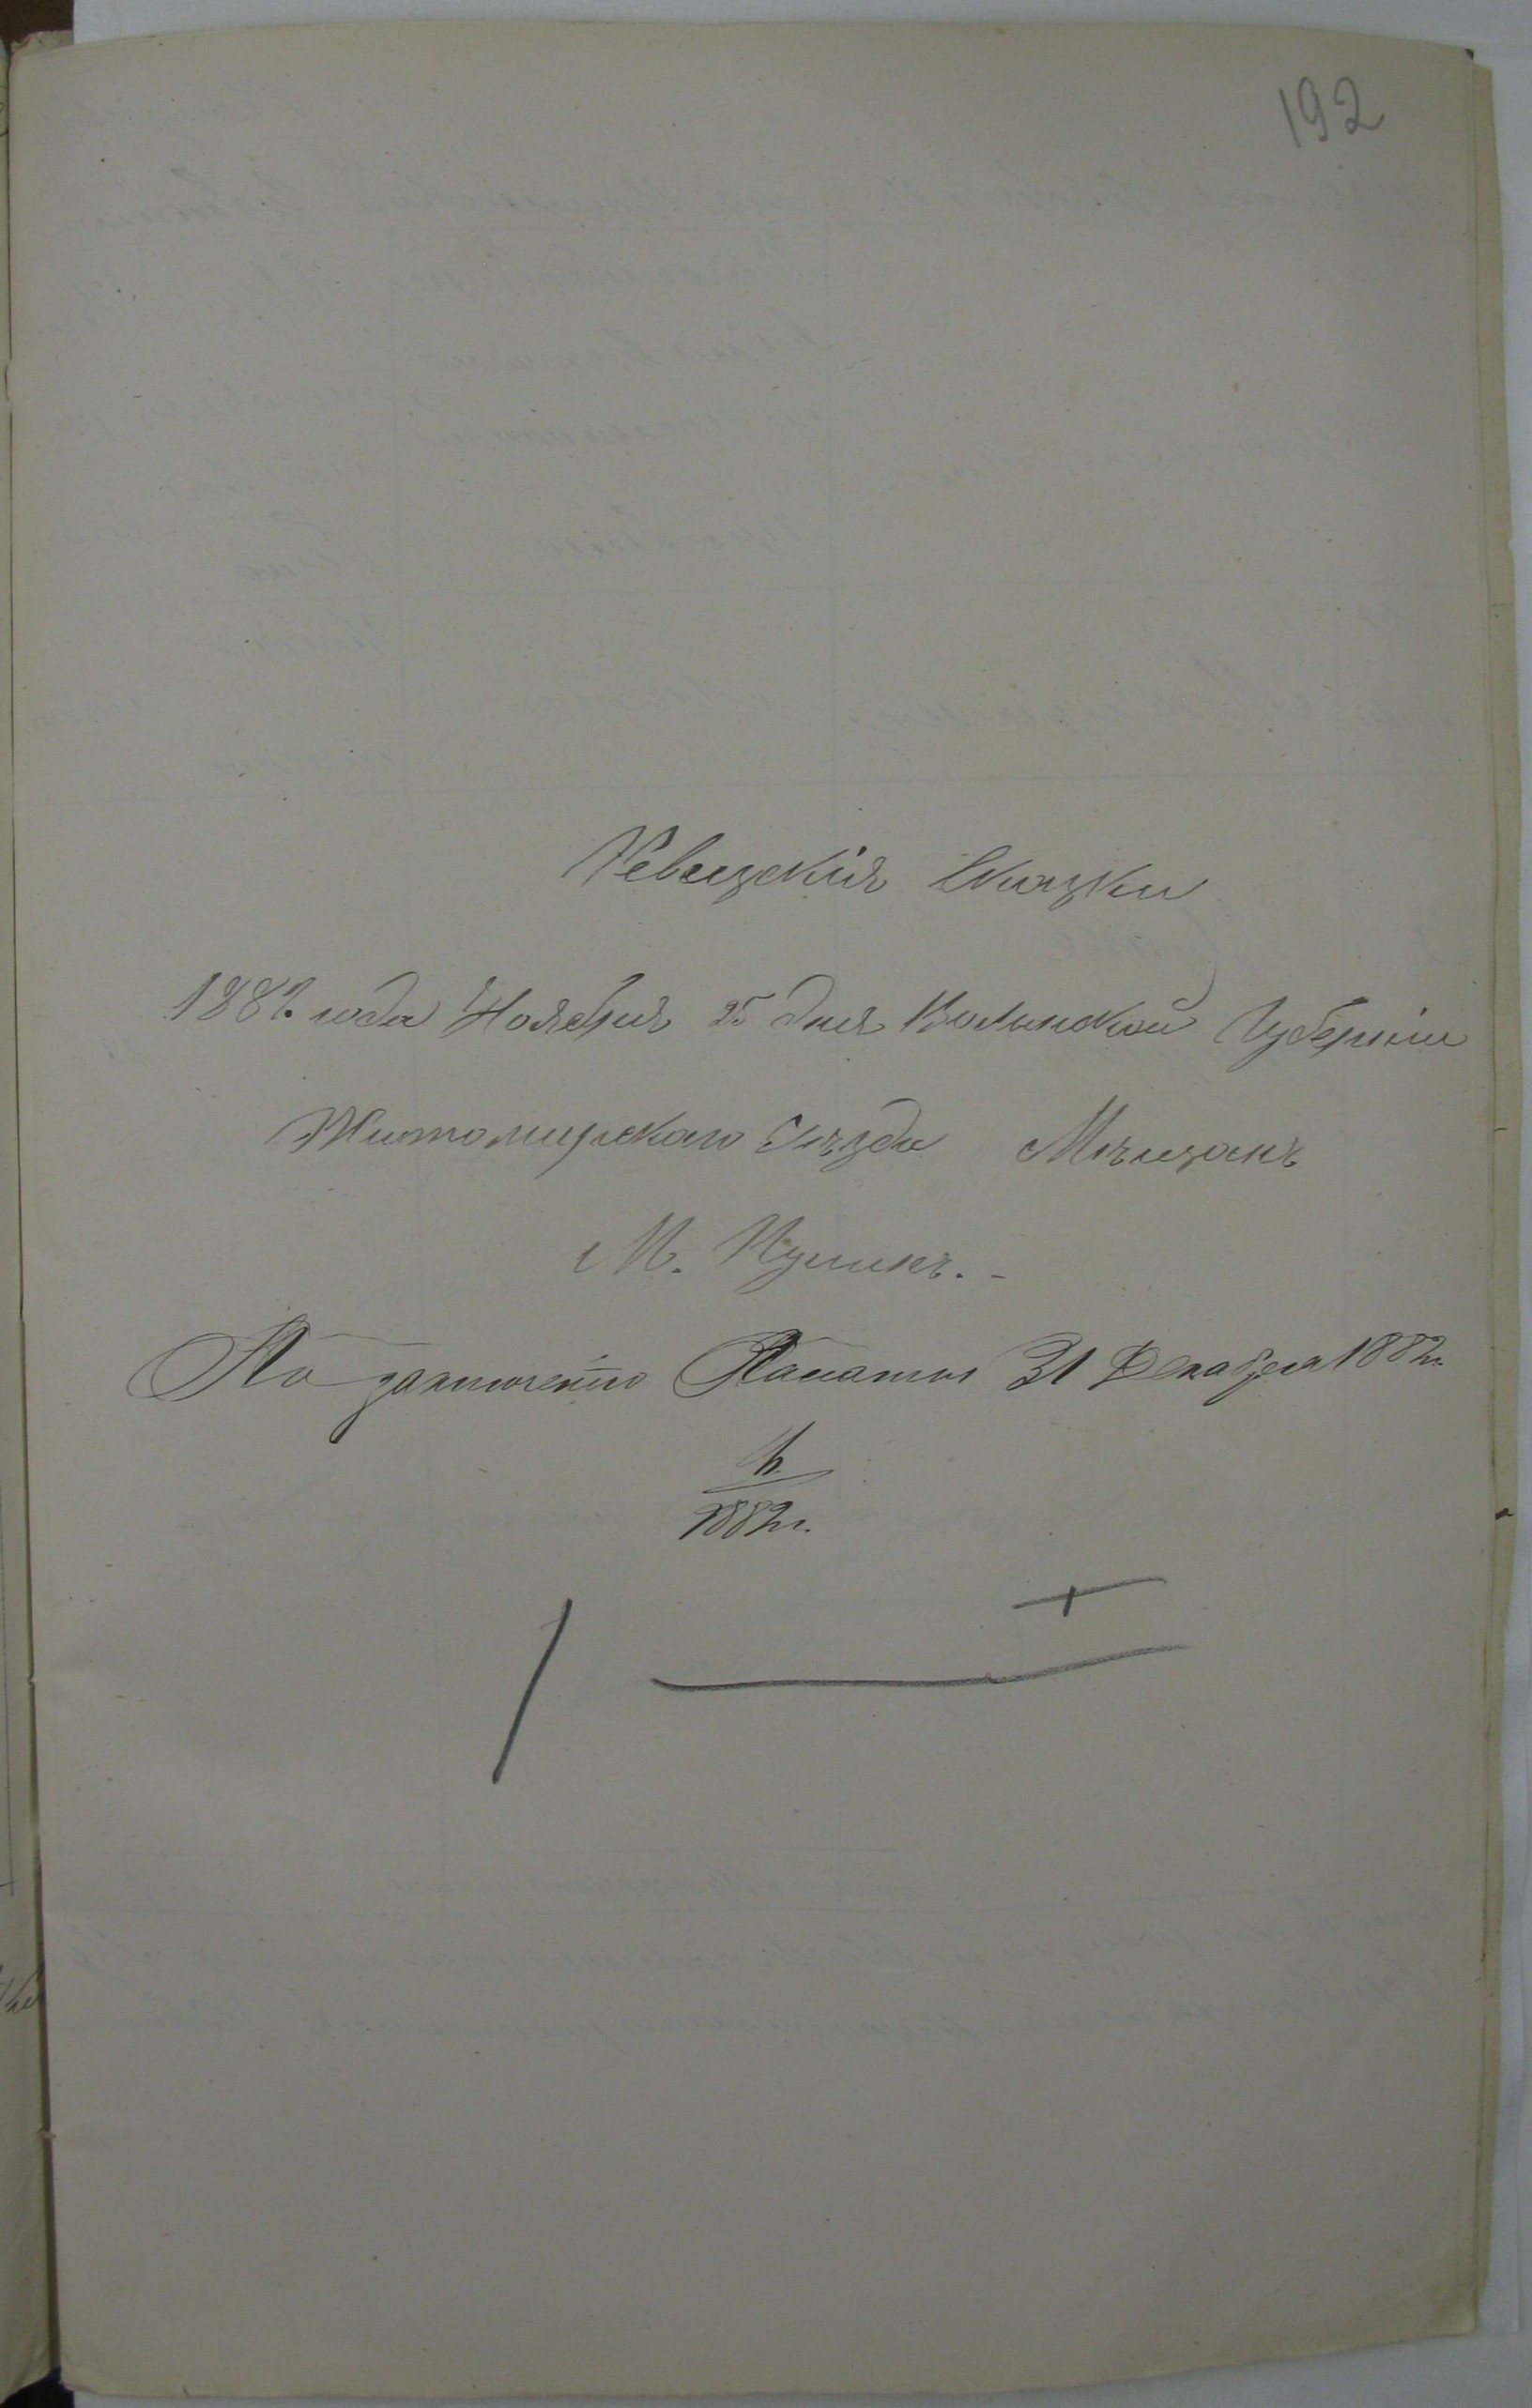 192
Ревизскія Сказки
1882 года Ноября 25 дня Волынской Губерніи
Житомирскаго Уѣзда Мѣщанъ
М. Пулинъ.
По заключенію Палаты 31 Декабря 1882 г.
1882 г.